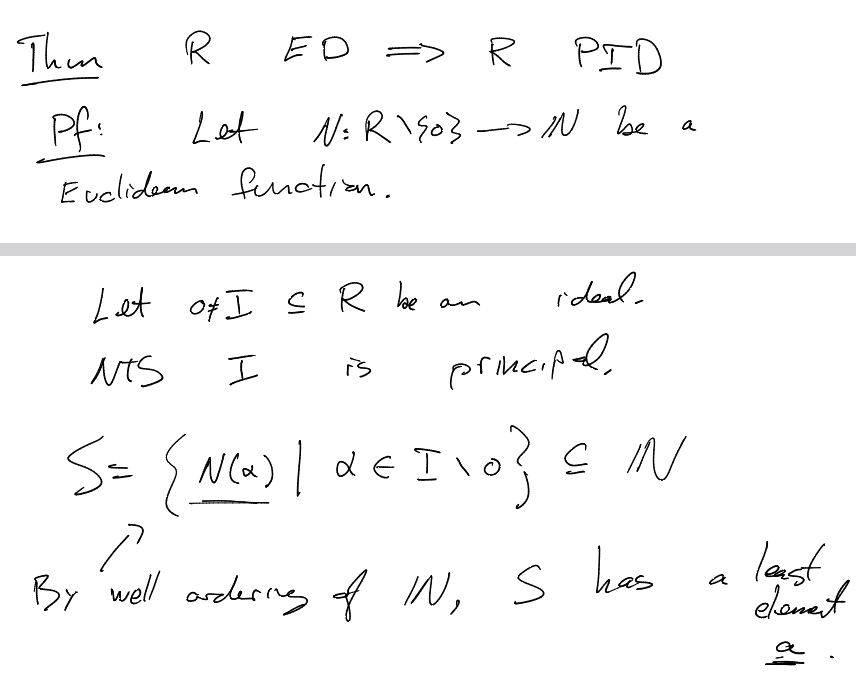 Thm R ED ⟹ R PID
Pf: Let N: R\{0} → ℕ be a
Euclidean function.
Let 0≠I ⊆ R be an ideal.
NTS I is principal.
S = {N(α) | α ∈ I\0} ⊆ ℕ
By well ordering of ℕ, S has a least
element
a.